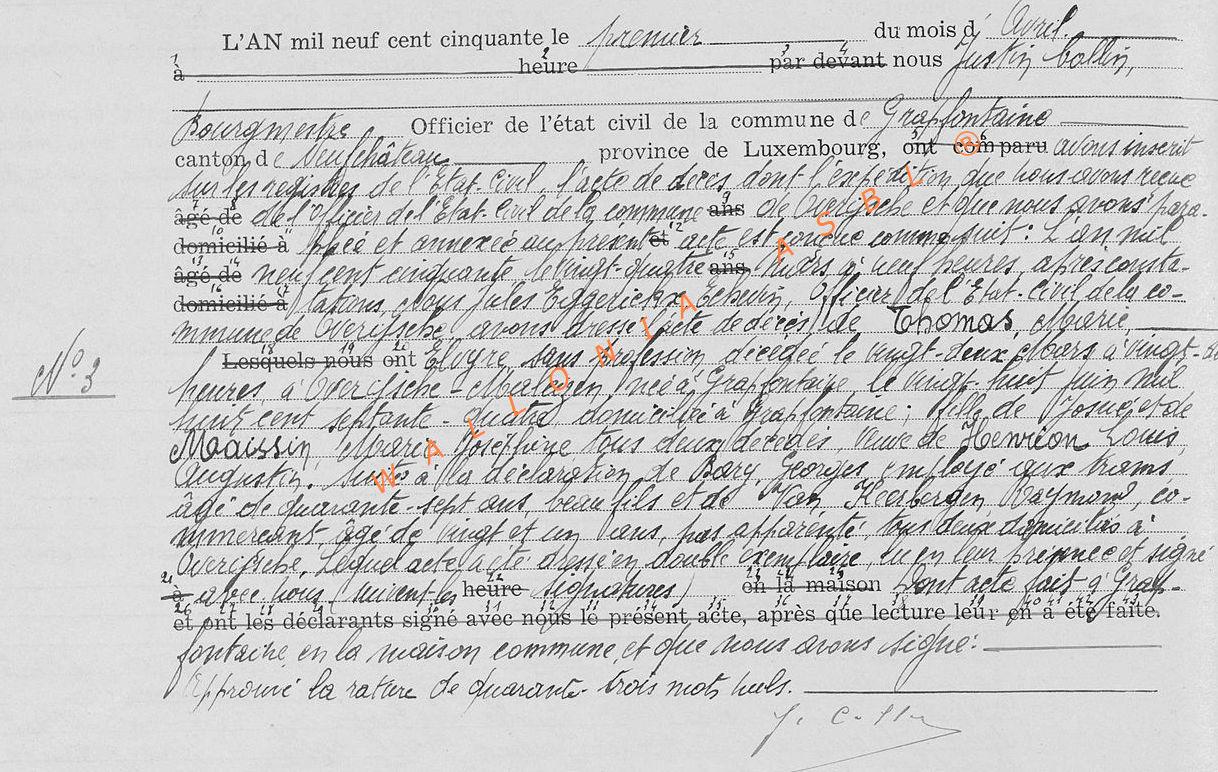 L'AN mil neuf cent cinquante le premier du mois d' Avril
à heure par devant nous Justin Collin,
Bourgmestre Officier de l'état civil de la commune de Grapfontaine
canton de Neufchâteau province de Luxembourg, ont comparu avons inscrit
sur les registres de l'Etat-Civil, l'acte de décès dont l'expédition que nous avons reçue
âgé de de l'Officier de l'Etat-Civil de la commune ans de Overijsche et que nous avons para-
domicilié à phée et annexée au présent et acte est couché comme suit : L'an mil
âgé de neuf cent cinquante le vingt-quatre ans Mars à neuf heures, après consta-
domicilié à tations, Nous Jules Eggerickx Echevin, Officier de l'Etat-Civil de la co-
mmune de Overijsche avons dressé l'acte de décès de Thomas, Marie,
Lesquels nous ont Elvyre sans profession, décédée le vingt-deux Mars à vingt-
heures, à Overijsche-Malaizen, née à Grapfontaine le vingt-huit Juin mil
huit cent septante-quatre domiciliée à Grapfontaine ; fille de Josué et de
Maaissin, Marie Joséphine tous deux décédés, veuve de Henrion Louis
Augustin. Suite à la déclaration de Bary Georges, employé aux trams,
âgé de quarante-sept ans, beau fils et de Van Keerbergen Raymond, co-
mmerçant, âgé de vingt et un ans, pas apparenté, tous deux domiciliés à
Overijsche. Lequel acte a été dressé en double exemplaire, lu en leur présence et signé
à avec nous (suivent les heure signatures) en la maison Dont acte fait à Grap-
et ont les déclarants signé avec nous le présent acte, après que lecture leur en a été faite.
fontaine, en la maison commune, et que nous avons signé :
Approuvé la rature de quarante-trois mots nuls.
J. Collin
N° 3
WALLONIA ASBL ®